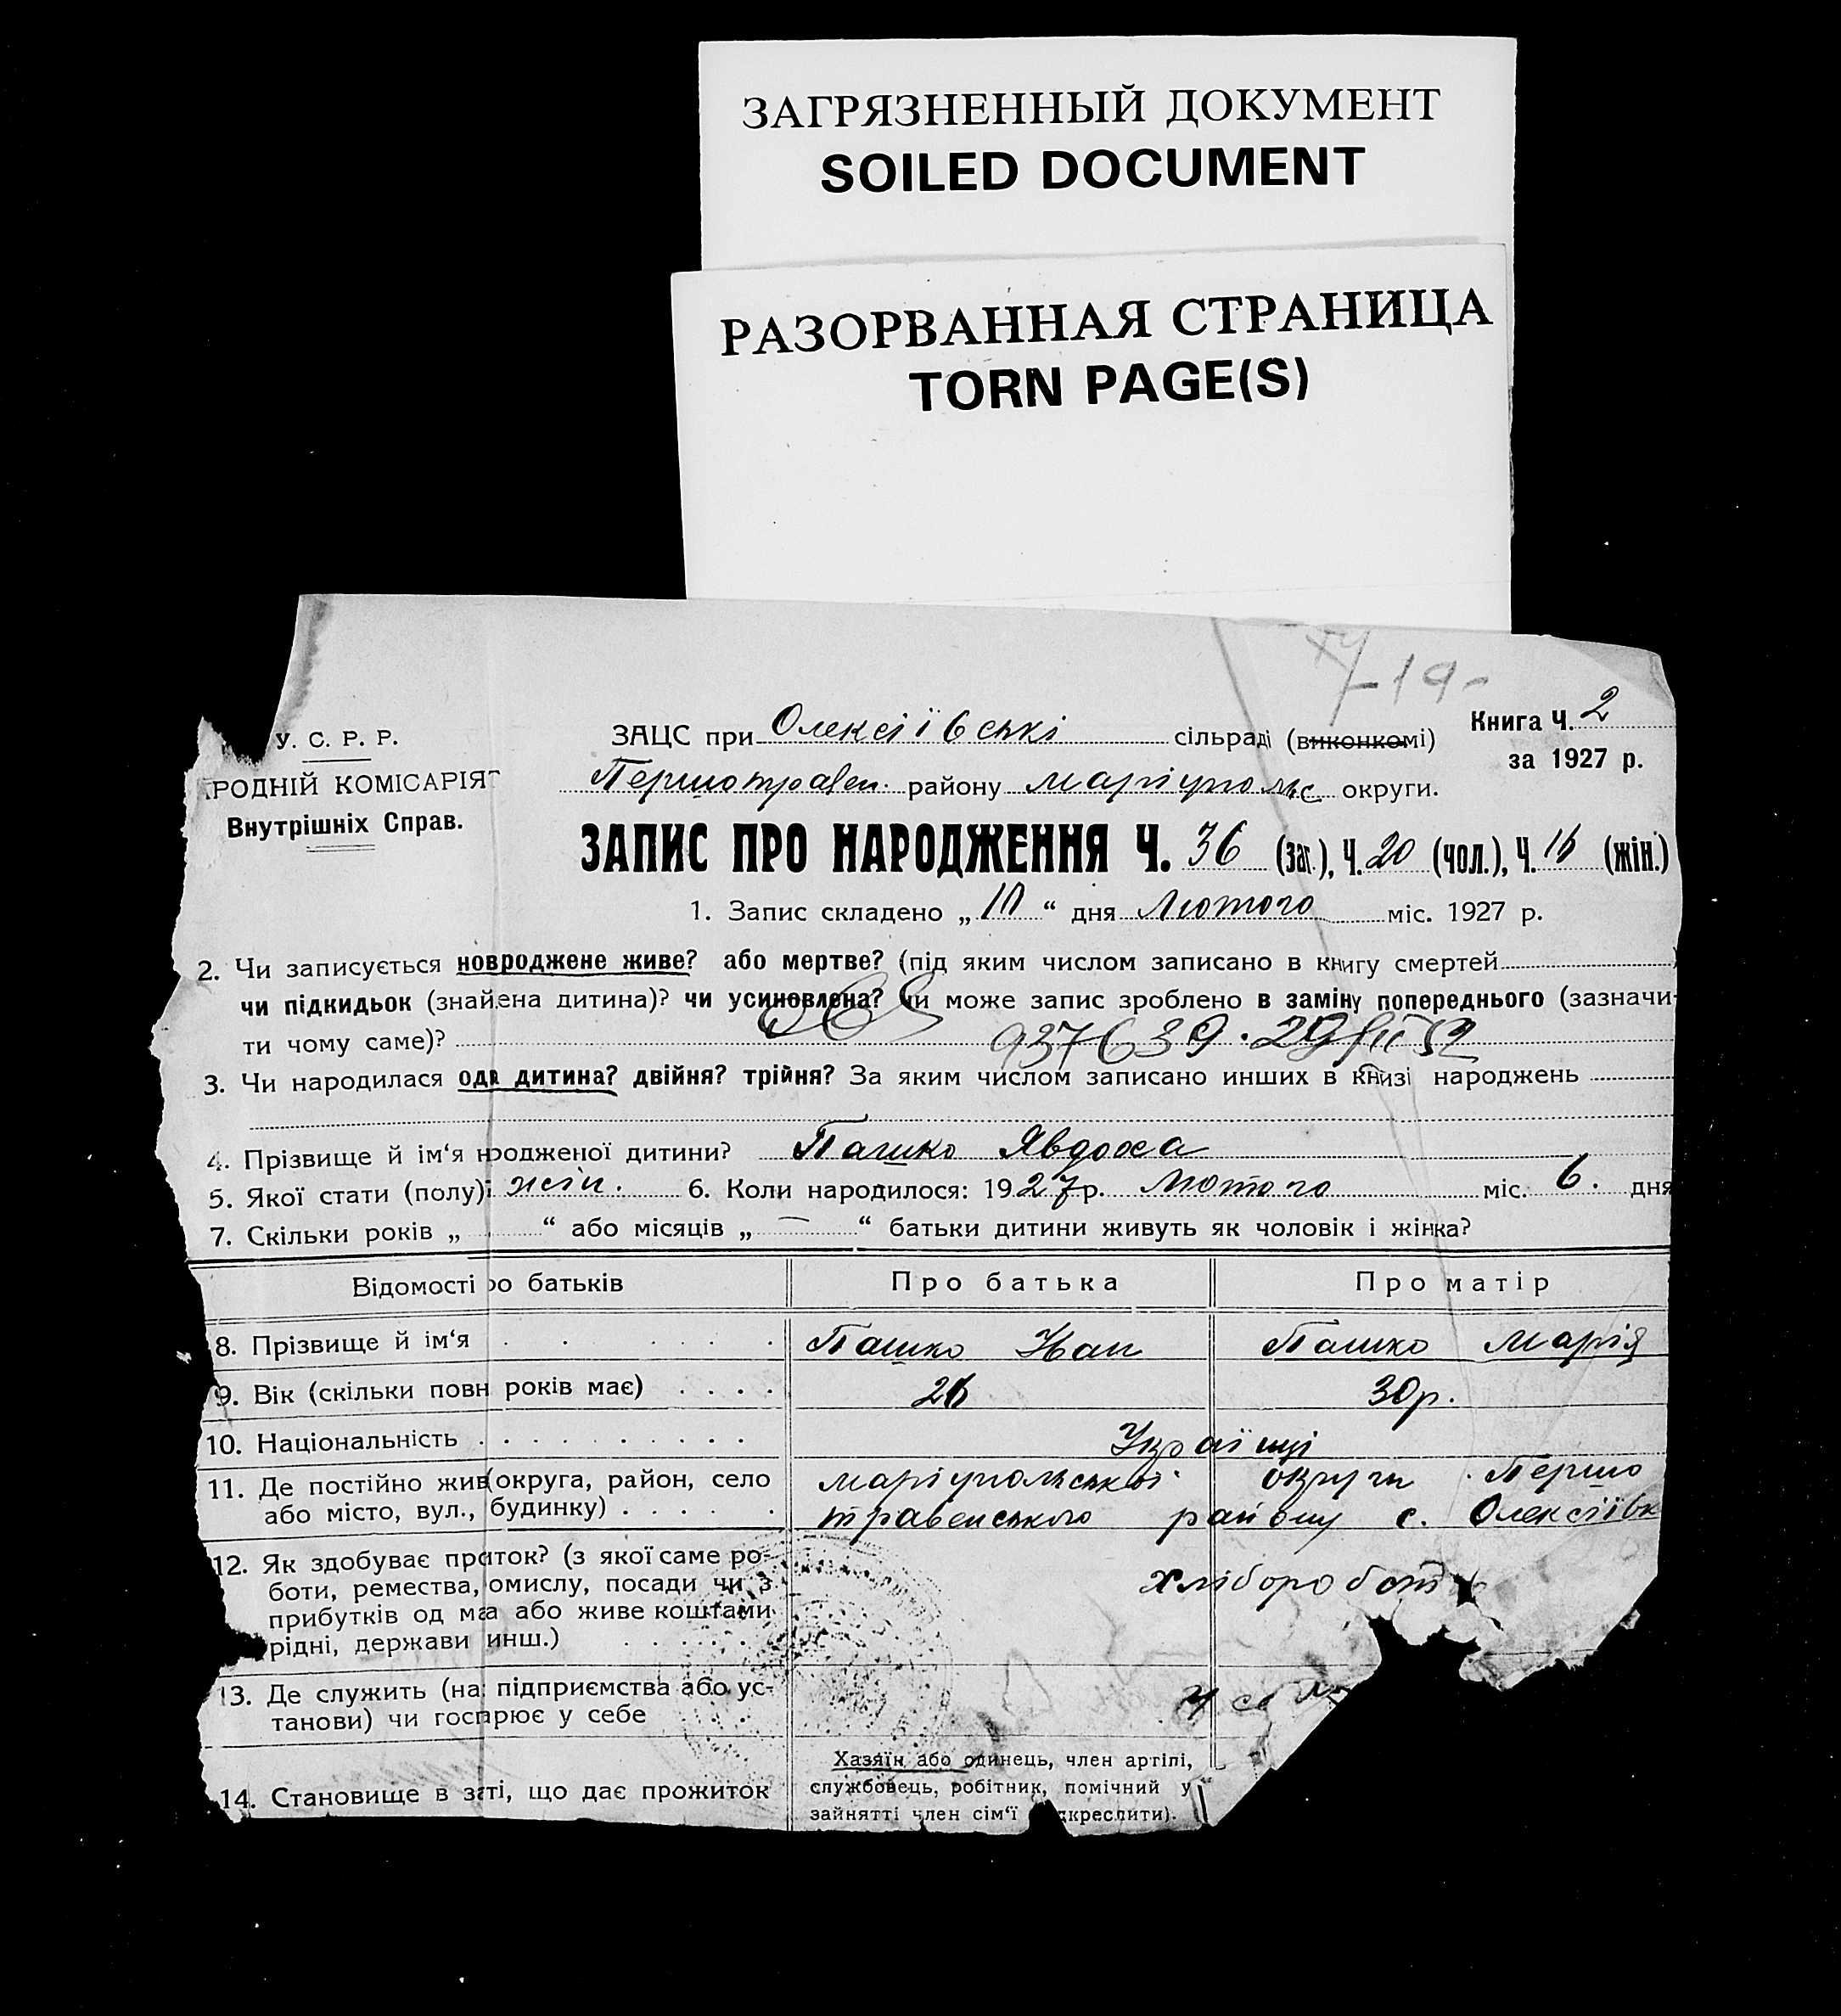 ЗАГРЯЗНЕННЫЙ ДОКУМЕНТ
SOILED DOCUMENT
РАЗОРВАННАЯ СТРАНИЦА
TORN PAGE(S)
-19-
У. С. Р. Р.
РОДНІЙ КОМІСАРІЯТ
Внутрішніх Справ.
ЗАЦС при Олексіївські сільраді (виконкомі)
Книга Ч. 2
за 1927 р.
Першотравен. району Маріупольс округи.
ЗАПИС ПРО НАРОДЖЕННЯ Ч. 36 (заг.), Ч. 20 (чол.), Ч. 16 (жін.)
1. Запис складено „ “ дня Лютого міс. 1927 р.
2. Чи записується новроджене живе? або мертве? (під яким числом записано в книгу смертей )
чи підкидьок (знайдена дитина)? чи усиновлена? чи може запис зроблено в заміну попереднього (зазначи-
ти чому саме)? 937639
3. Чи народилася одна дитина? двійня? трійня? За яким числом записано инших в книзі народжень
4. Прізвище й ім‘я нродженої дитини? Пашко Явдоха
5. Якої стати (полу) жін. 6. Коли народилося: 1927 р. Лютого міс. 6. дня
7. Скільки років „ “ або місяців „ — “ батьки дитини живуть як чоловік і жінка?
Відомості ро батьків Про батька Про матір
8. Прізвище й ім‘я Пашко Иван Пашко Марія
9. Вік (скільки повн років має) 26 30р.
10. Національність Українці
11. Де постійно жив (округа, район, село Маріупольської округи Першо
або місто, вул., будинку) травенського району с. Олексіївк
12. Як здобуває приток? (з якої саме ро- хлібороб
боти, ремества, омислу, посади чи з
прибутків од ма або живе коштами
рідні, держави инш.)
13. Де служить (на підприємства або ус-
танови) чи госпрює у себе
14. Становище в заті, що дає прожиток
Хазяїн або одинець, член артілі,
службовець, робітник, помічний у
зайнятті член сім‘ї дкреслити).